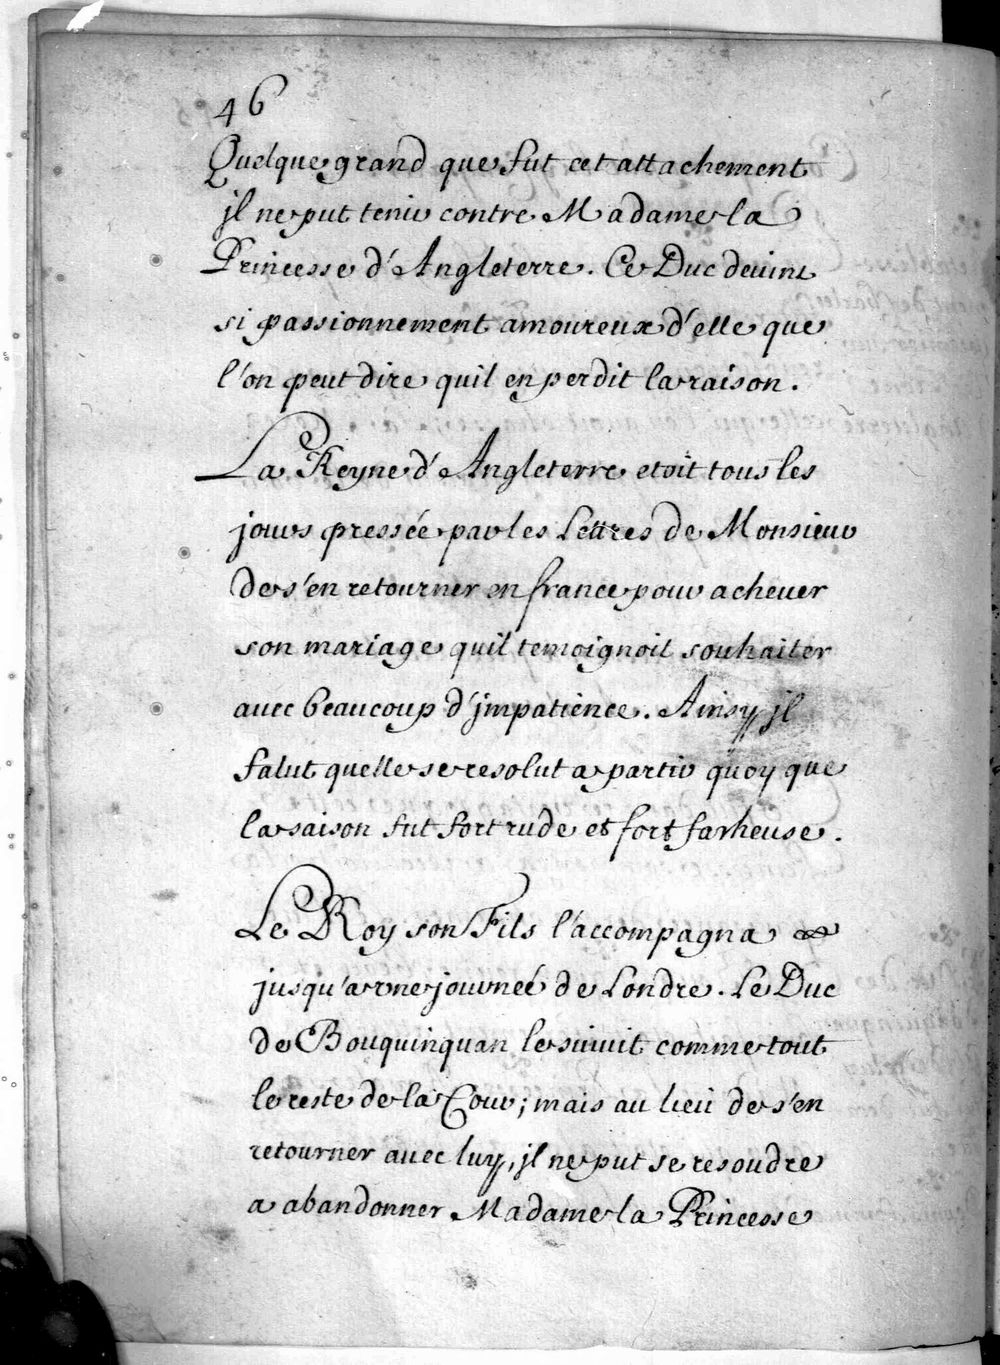 46
Quelque grand que fut cet attachement
jl ne put tenir contre Madame la
Princesse d'Angleterre. Ce Duc devint
si passionnement amoureux d'elle que
l'on peut dire quil en perdit la raison.
La Reyne d'Angleterre etoit tous les
jours pressée par les Lettres de Monsieur
de s'en retourner en france pour achever
son mariage quil temoignoit souhaiter
avec beaucoup d'jmpatience. Ainsy jl
falut quelle se resolut a partir quoy que
la saison fut fort rude et fort facheuse.
Le Roy son Fils l'accompagna
jusqu'a une journeé de Londre. Le Duc
de Bouquinquan le suivit comme tout
le reste de la Cour; mais au lieu de s'en
retourner avec luy, jl ne put se resoudre
a abandonner Madame la Princesse